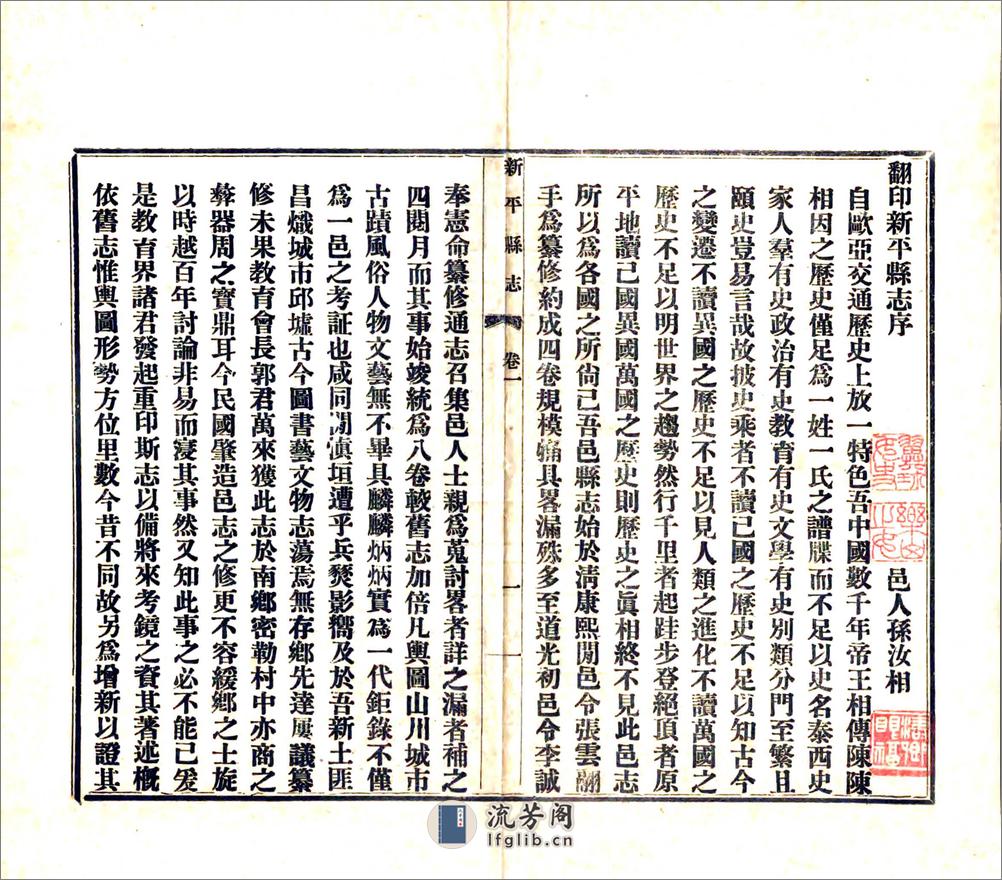 翻印新平縣志序
邑人孫汝相
自歐亞交通歷史上放一特色吾中國數千年帝王相傳陳陳
相因之歷史僅足爲一姓一氏之譜牒而不足以史名泰西史
家人羣有史政治有史教育有史文學有史別類分門至繁且
頤史豈易言哉故披史乘者不讀已國之歷史不足以知古今
之變遷不讀異國之歷史不足以見人類之進化不讀萬國之
歷史不足以明世界之趨勢然行千里者起跬步登絕頂者原
平地讀已國異國萬國之歷史則歷史之眞相終不見此邑志
所以爲各國之所尙已吾邑縣志始於淸康熙閒邑令張雲翮
手爲纂修約成四卷規模犕具畧漏殊多至道光初邑令李誠
新平縣志
卷一
一
奉憲命纂修通志召集邑人士親爲蒐討畧者詳之漏者補之
四閱月而其事始竣統爲八卷較舊志加倍凡輿圖山州城市
古蹟風俗人物文藝無不畢具麟麟炳炳實爲一代鉅錄不僅
爲一邑之考証也咸同閒滇垣遭乎兵燹影嚮及於吾新土匪
昌熾城市邱墟古今圖書藝文物志蕩焉無存鄉先達屢議纂
修未果教育會長郭君萬來獲此志於南鄉密勒村中亦商之
彝器周之寶鼎耳今民國肇造邑志之修更不容緩鄉之士旋
以時越百年討論非易而寢其事然又知此事之必不能已爰
是教育界諸君發起重印斯志以備將來考鏡之資其著述槪
依舊志惟輿圖形勢方位里數今昔不同故另爲增新以證其
流芳阁
lfglib.cn